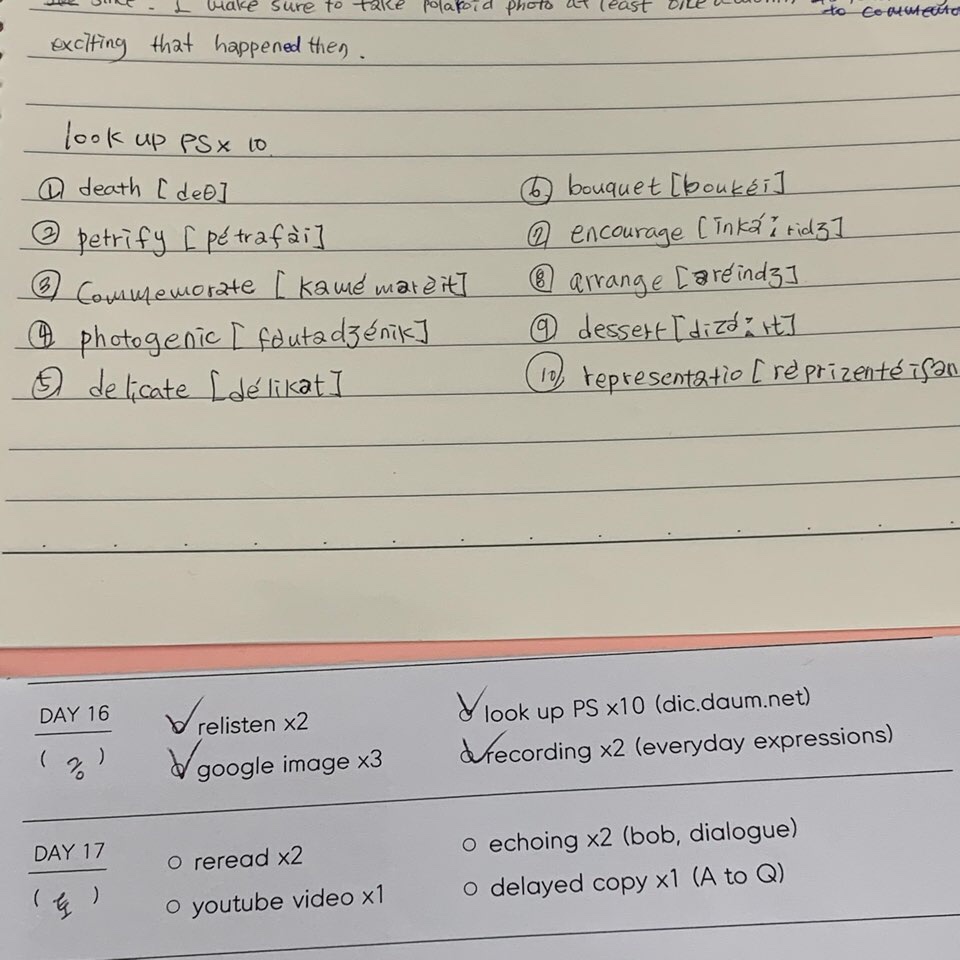 I make sure to take polaroid photo at least once
to commemo
exciting that happened then.
look up PS x 10
① death [deθ]
② petrify [pétrəfài]
③ Commemorate [kəmémərèit]
④ photogenic [fòutədʒénik]
⑤ delicate [délikət]
⑥ bouquet [boukéi]
⑦ encourage [inkə́ːridʒ]
⑧ arrange [əréindʒ]
⑨ dessert [dizə́ːrt]
⑩ representatio [rèprizentéiʃən
DAY 16
relisten x2
look up PS x10 (dic.daum.net)
(금)
google image x3
recording x2 (everyday expressions)
DAY 17
○ reread x2
○ echoing x2 (bob, dialogue)
(토)
○ youtube video x1
○ delayed copy x1 (A to Q)